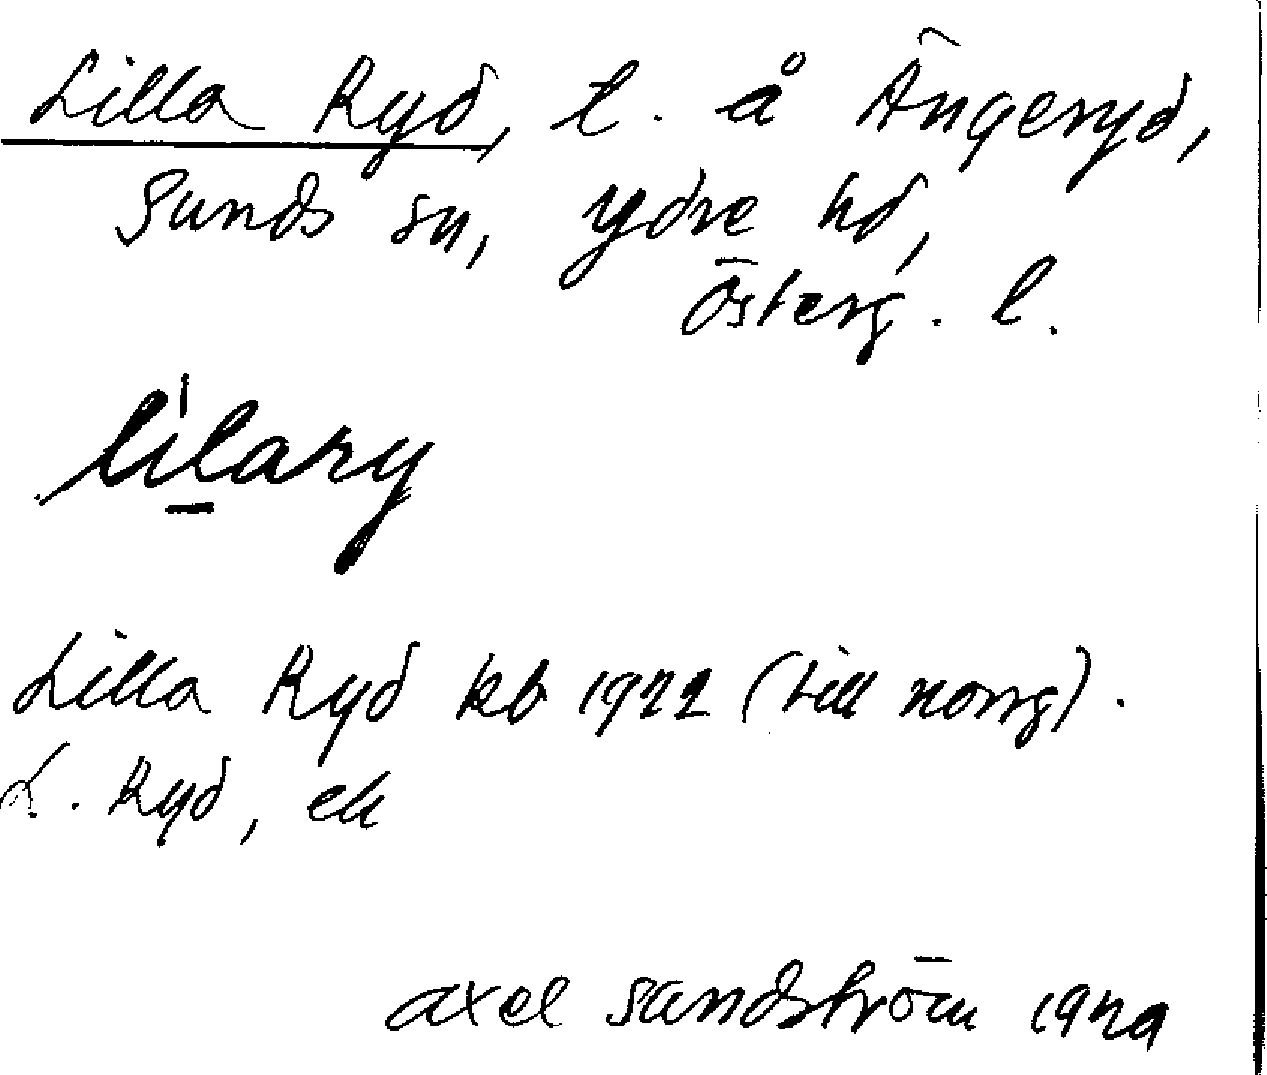 Lilla Ryd, l. å Ängeryd,
Sunds sn, Ydre hd,
Österg. l.
lilary
Lilla Ryd kb 1922 (till norrg).
L. Ryd, ek
Axel Sandström 1929